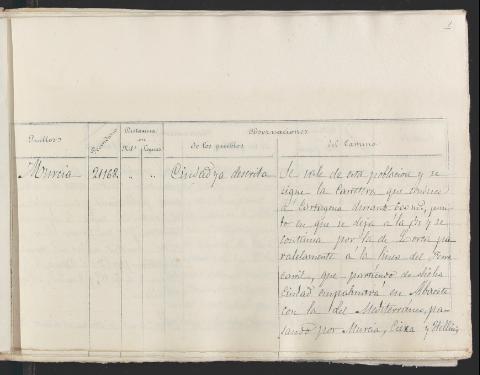 1
Pueblos
Vecindario
Distancia
en
Kils
Leguas
Observaciones
De los pueblos
Del camino
Murcia
24168
"
"
Ciudad ya descrita
Se sale de esta población y se
sigue la carretera que conduce
á Cartagena durante
to en que se deja á la y se
continúa por la de Lorca pa
ralelamente á la línea del Ferro
carril, que partiendo de dicha
ciudad empalmará en Albacete
con la del Mediterráneo, pa
sando por Murcia, Cieza y Hellín